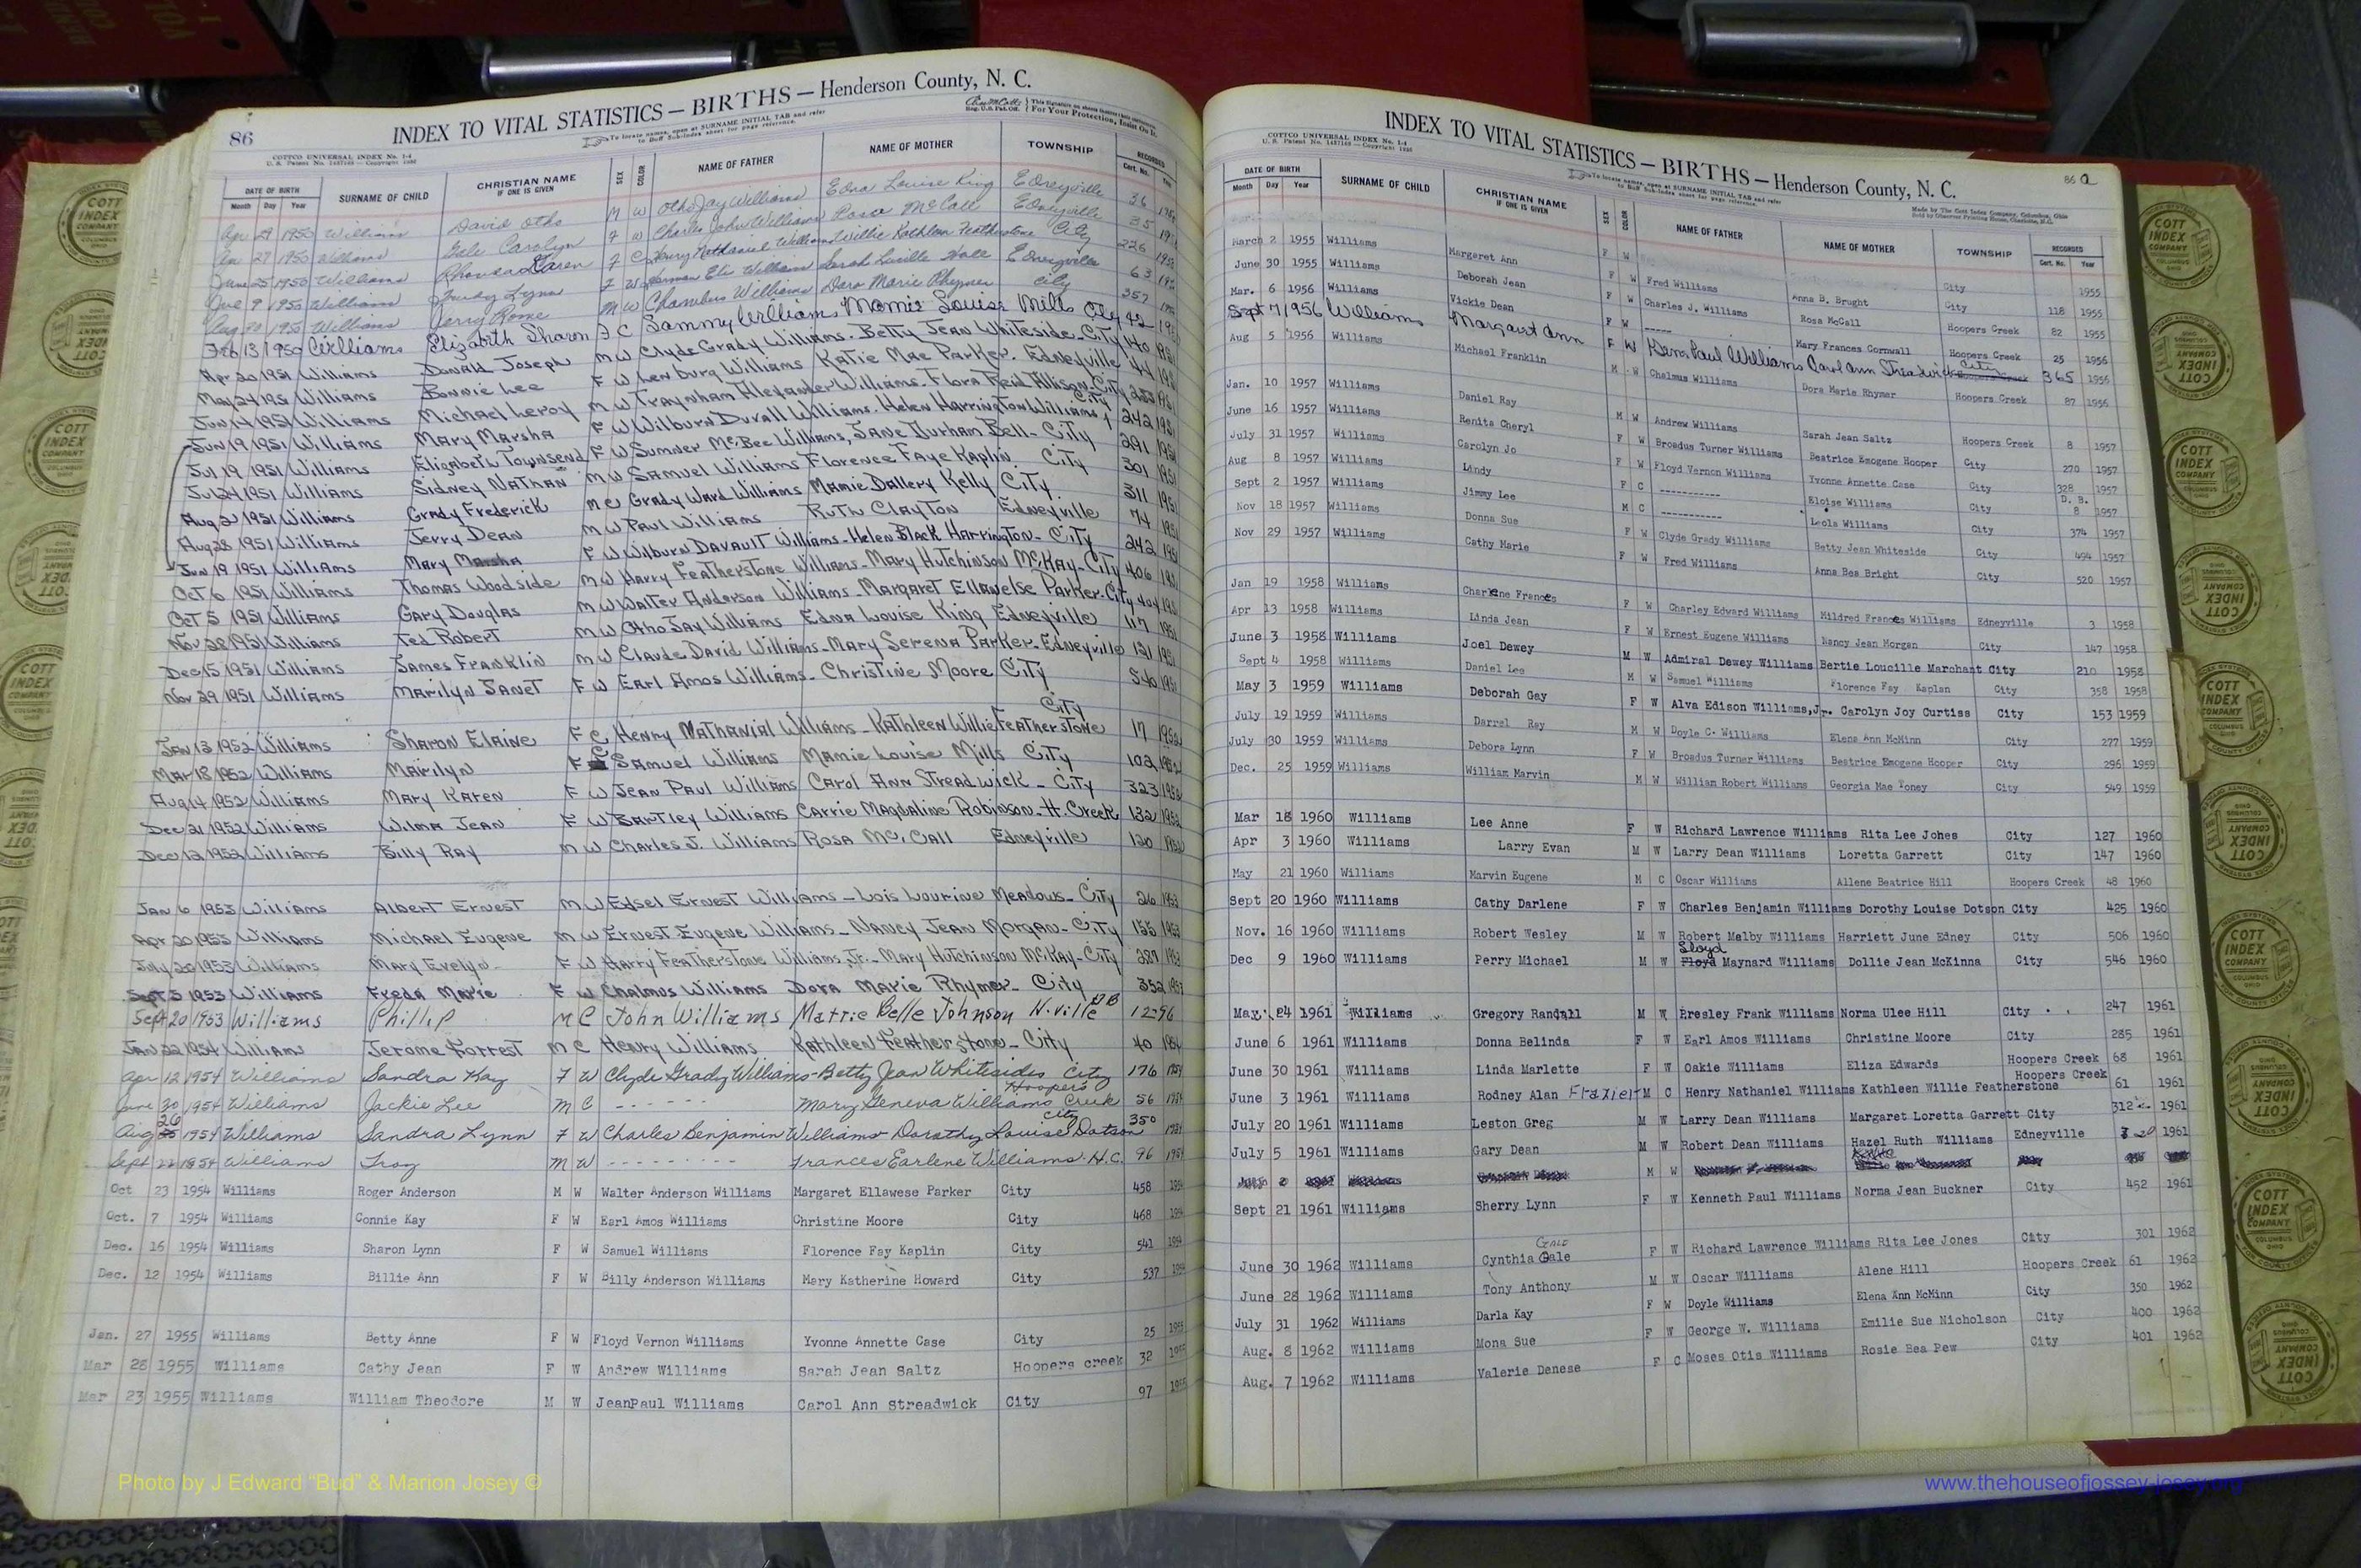 86
INDEX TO VITAL STATISTICS — BIRTHS — Henderson County, N. C.
COTTCO UNIVERSAL INDEX No. 1-4
To locate names, open at SURNAME INITIAL TAB and refer
to Buff Sub-Index sheet for page reference.
DATE OF BIRTH
Month Day Year SURNAME OF CHILD CHRISTIAN NAME IF ONE IS GIVEN SEX COLOR NAME OF FATHER NAME OF MOTHER TOWNSHIP RECORDED Cert. No.
Apr 29 1950 Williams David Otho M W Otho Jay Williams Edna Louise King Edneyville 36
27 1950 Williams Gale Carolyn F W Charles John Williams Rosa McCall Edneyville 35
June 25 1950 Williams Rhonda Karen F C Henry Nathaniel Williams Willie Kathleen Featherstone City 226
9 1950 Williams Judy Lynn F W Herman Eli Williams Sarah Lucille Hall Edneyville 63
Aug 1950 Williams Jerry Rome M W Chambus Williams Dora Marie Rhymer City 357
Feb 13 1950 Williams Elizabeth Sharon F C Sammy Williams Mamie Louise Mills City 42
Apr 20 1951 Williams Donald Joseph M W Clyde Grady Williams - Betty Jean Whiteside - City 140 1951
May 24 1951 Williams Bonnie Lee F W Williams Katie Mae Parker - Edneyville 44 1951
Jun 14 1951 Williams Michael Leroy M W Traynham Alexander Williams - Flora Reid Allison - City 253 1951
Jun 19 1951 Williams Mary Marsha F W Wilburn Duvall Williams - Helen Harrington Williams City 242 1951
Jul 19 1951 Williams Elizabeth Townsend F W Sumner McBee Williams, Jane Durham Bell - City 291 1951
Jul 24 1951 Williams Sidney Nathan M W Samuel Williams Florence Faye Kaplin City 301 1951
Aug 2 1951 Williams Grady Frederick M C Grady Ward Williams Mamie Dallery Kelly City 311 1951
Aug 28 1951 Williams Jerry Dean M W Paul Williams Ruth Clayton Edneyville 74 1951
Jun 19 1951 Williams Mary Marsha F W Wilburn Davault Williams - Helen Black Harrington - City 242 1951
Oct 6 1951 Williams Thomas Woodside M W Harry Featherstone Williams - Mary Hutchinson McKay - City 406 1951
Oct 5 1951 Williams Gary Douglas M W Walter Anderson Williams - Margaret Ellawelse Parker - City 404 1951
Nov 28 1951 Williams Ted Robert M W Otho Jay Williams Edna Louise King Edneyville 117 1951
Dec 15 1951 Williams James Franklin M W Claude David Williams - Mary Serena Parker - Edneyville 121 1951
Nov 29 1951 Williams Marilyn Janet F W Earl Amos Williams - Christine Moore City 540 1951
Jan 13 1952 Williams Sharon Elaine F C Henry Nathanial Williams - Kathleen Willie Featherstone City 17 1952
Mar 18 1952 Williams Marilyn F C Samuel Williams Mamie Louise Mills City 102 1952
Aug 14 1952 Williams Mary Karen F W Jean Paul Williams Carol Ann Streadwick - City 323 1952
Dec 21 1952 Williams Wilma Jean F W Bartley Williams Carrie Magdaline Robinson - H. Creek 132 1952
Dec 12 1952 Williams Billy Ray M W Charles J. Williams Rosa McCall Edneyville 120 1952
Jan 6 1953 Williams Albert Ernest M W Edsel Ernest Williams - Lois Lourine Meadows - City 26 1953
Apr 20 1953 Williams Michael Eugene M W Ernest Eugene Williams - Nancy Jean Morgan - City 155 1953
July 20 1953 Williams Mary Evelyn F W Harry Featherstone Williams, Jr. - Mary Hutchinson McKay - City 287 1953
Sept 5 1953 Williams Freda Marie F W Chalmus Williams Dora Marie Rhymer - City 352 1953
Sept 20 1953 Williams Phillip M C John Williams Mattie Belle Johnson H.ville DB 12-96
Jan 22 1954 Williams Jerome Forrest M C Henry Williams Kathleen Featherstone - City 40 1954
Apr 12 1954 Williams Sandra Kay F W Clyde Grady Williams - Betty Jean Whitesides City 176 1954
June 30 1954 Williams Jackie Lee M C ------ Mary Geneva Williams Hoopers Creek 56 1954
Aug 26 1954 Williams Sandra Lynn F W Charles Benjamin Williams - Dorothy Louise Dotson City 350 1954
Sept 22 1954 Williams Troy M W --------- Frances Earlene Williams H.C. 96 1954
Oct 23 1954 Williams Roger Anderson M W Walter Anderson Williams Margaret Ellawese Parker City 458 1954
Oct. 7 1954 Williams Connie Kay F W Earl Amos Williams Christine Moore City 468 1954
Dec. 16 1954 Williams Sharon Lynn F W Samuel Williams Florence Fay Kaplin City 541 1954
Dec. 12 1954 Williams Billie Ann F W Billy Anderson Williams Mary Katherine Howard City 537 1954
Jan. 27 1955 Williams Betty Anne F W Floyd Vernon Williams Yvonne Annette Case City 25 1955
Mar 28 1955 Williams Cathy Jean F W Andrew Williams Sarah Jean Saltz Hoopers creek 32 1955
Mar 23 1955 Williams William Theodore M W JeanPaul Williams Carol Ann Streadwick City 97 1955
86 a
INDEX TO VITAL STATISTICS — BIRTHS — Henderson County, N. C.
COTTCO UNIVERSAL INDEX No. 1-4
To locate names, open at SURNAME INITIAL TAB and refer
to Buff Sub-Index sheet for page reference.
DATE OF BIRTH
Month Day Year SURNAME OF CHILD CHRISTIAN NAME IF ONE IS GIVEN SEX COLOR NAME OF FATHER NAME OF MOTHER TOWNSHIP RECORDED Cert. No. Year
March 2 1955 Williams Margaret Ann F W Fred Williams Anna B. Brught City 1955
June 30 1955 Williams Deborah Jean F W Charles J. Williams Rosa McCall City 118 1955
Mar. 6 1956 Williams Vickie Dean F W ----- Mary Frances Cornwall Hoopers Creek 82 1955
Sept 7 1956 Williams Margaret Ann F W Paul Williams Carol Ann Streadwick City 365 1956
Aug 5 1956 Williams Michael Franklin M W Chalmus Williams Dora Marie Rhymer Hoopers Creek 87 1956
Jan. 10 1957 Williams Daniel Ray M W Andrew Williams Sarah Jean Saltz Hoopers Creek 8 1957
June 16 1957 Williams Renita Cheryl F W Broadus Turner Williams Beatrice Emogene Hooper City 270 1957
July 31 1957 Williams Carolyn Jo F W Floyd Vernon Williams Yvonne Annette Case City 328 1957
Aug 8 1957 Williams Lindy F C ----------- Eloise Williams City D. B. 8 1957
Sept 2 1957 Williams Jimmy Lee M C ----------- Leola Williams City 374 1957
Nov 18 1957 Williams Donna Sue F W Clyde Grady Williams Betty Jean Whiteside City 494 1957
Nov 29 1957 Williams Cathy Marie F W Fred Williams Anna Bea Bright City 520 1957
Jan 19 1958 Williams Charlene Frances F W Charley Edward Williams Mildred Frances Williams Edneyville 3 1958
Apr 13 1958 Williams Linda Jean F W Ernest Eugene Williams Nancy Jean Morgan City 147 1958
June 3 1958 Williams Joel Dewey M W Admiral Dewey Williams Bertie Loucille Marchant City 210 1958
Sept 4 1958 Williams Daniel Lee M W Samuel Williams Florence Fay Kaplan City 358 1958
May 3 1959 Williams Deborah Gay F W Alva Edison Williams,Jr. Carolyn Joy Curtiss City 153 1959
July 19 1959 Williams Darrel Ray M W Doyle C. Williams Elena Ann McMinn City 277 1959
July 30 1959 Williams Debora Lynn F W Broadus Turner Williams Beatrice Emogene Hooper City 296 1959
Dec. 25 1959 Williams William Marvin M W Willian Robert Williams Georgia Mae Toney City 549 1959
Mar 18 1960 Williams Lee Anne F W Richard Lawrence Williams Rita Lee Johes City 127 1960
Apr 3 1960 Williams Larry Evan M W Larry Dean Williams Loretta Garrett City 147 1960
May 21 1960 Williams Marvin Eugene M C Oscar Williams Allene Beatrice Hill Hoopers Creek 48 1960
Sept 20 1960 Williams Cathy Darlene F W Charles Benjamin Williams Dorothy Louise Dotson City 425 1960
Nov. 16 1960 Williams Robert Wesley M W Robert Melby Williams Harriett June Edney City 506 1960
Dec 9 1960 Williams Perry Michael M W Lloyd Floyd Maynard Williams Dollie Jean McKinna City 546 1960
May 24 1961 Williams Gregory Randall M W Bresley Frank Williams Norma Ulee Hill City 247 1961
June 6 1961 Williams Donna Belinda F W Earl Amos Williams Christine Moore City 285 1961
June 30 1961 Williams Linda Marlette F W Oakie Williams Eliza Edwards Hoopers Creek 68 1961
June 3 1961 Williams Rodney Alan Frazier M C Henry Nathaniel Williams Kathleen Willie Featherstone Hoopers Creek 61 1961
July 20 1961 Williams Leston Greg M W Larry Dean Williams Margaret Loretta Garrett City 312 1961
July 5 1961 Williams Gary Dean M W Robert Dean Williams Hazel Ruth Williams Edneyville 1961
M W
Sept 21 1961 Williams Sherry Lynn F W Kenneth Paul Williams Norma Jean Buckner City 452 1961
June 30 1962 Williams Cynthia Gale GALE F W Richard Lawrence Williams Rita Lee Jones City 301 1962
June 28 1962 Williams Tony Anthony M W Oscar Williams Alene Hill Hoopers Creek 61 1962
July 31 1962 Williams Darla Kay F W Doyle Williams Elena Ann McMinn City 350 1962
Aug. 8 1962 Williams Mona Sue F W George W. Williams Emilie Sue Nicholson City 400 1962
Aug. 7 1962 Williams Valerie Denese F C Moses Otis Williams Rosie Bea Pew City 401 1962
Photo by J Edward “Bud” & Marion Josey ©
www.thehouseofjossey-josey.org